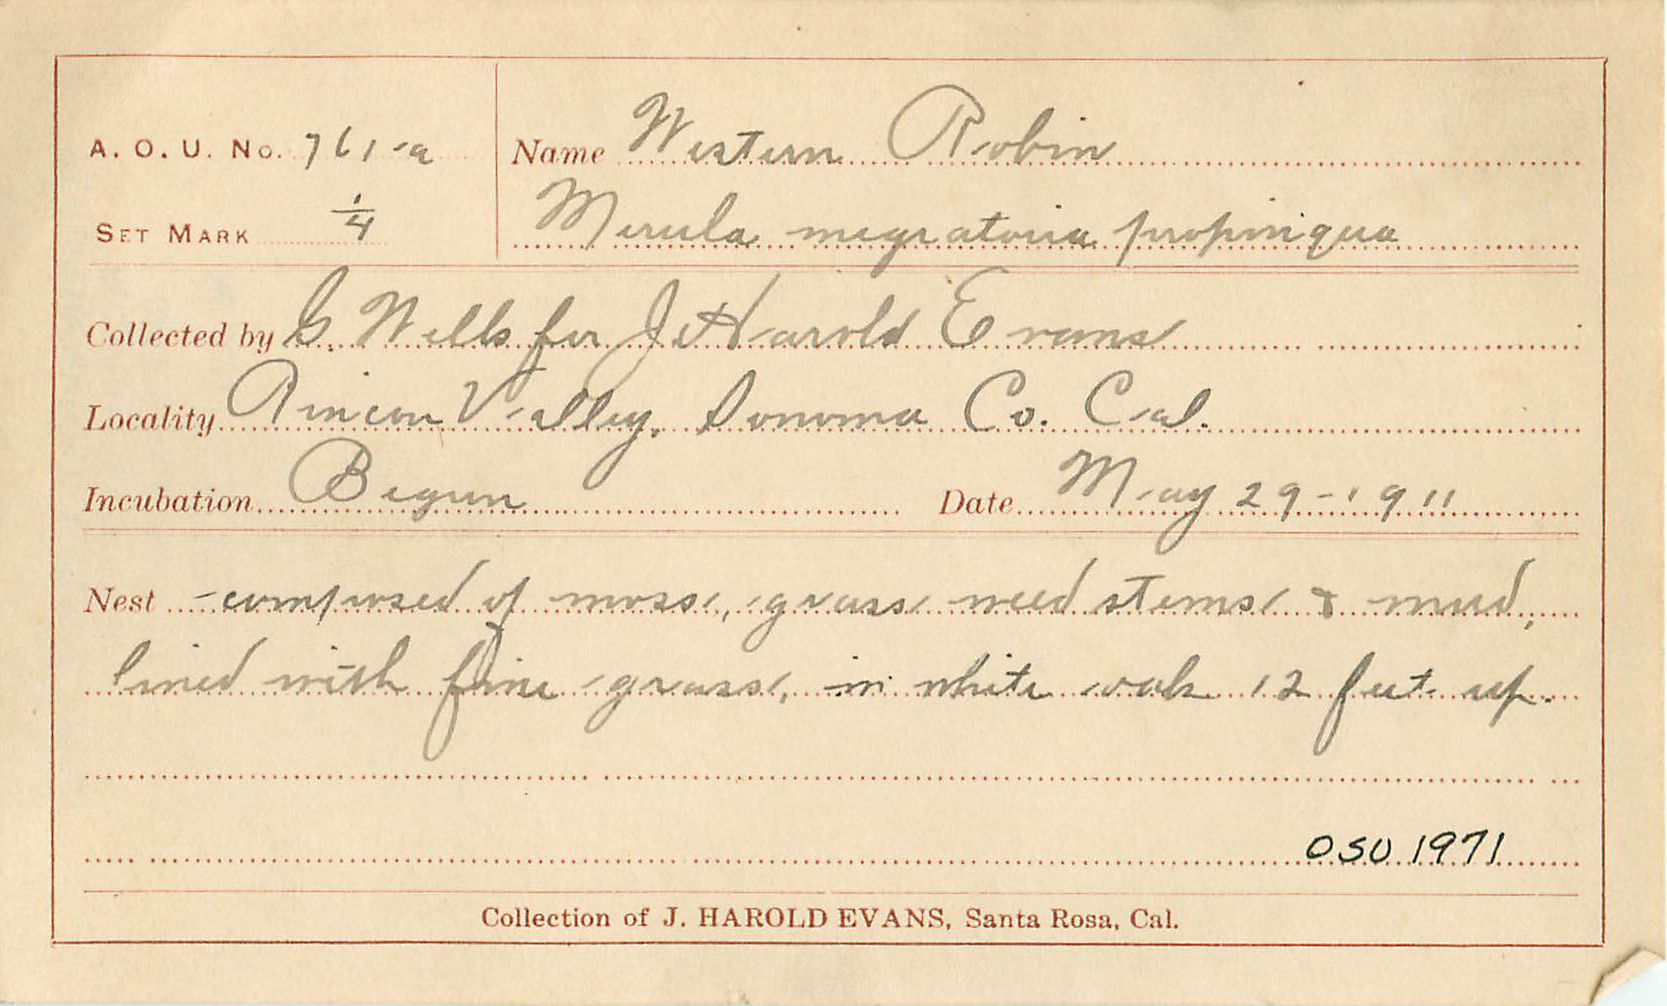 A. O. U. No. 761-a
Name Western Robin
Set Mark 1/4
Merula megratoria propinqua
Collected by G. Wells for J. Harold Evans
Locality Rincon Valley, Sonoma Co. Cal.
Incubation Begun Date May 29-1911
Nest -composed of moss, grass weed stems & mud,
lined with fine grass, in white oak 12 feet up.
OSU 1971
Collection of J. HAROLD EVANS, Santa Rosa, Cal.